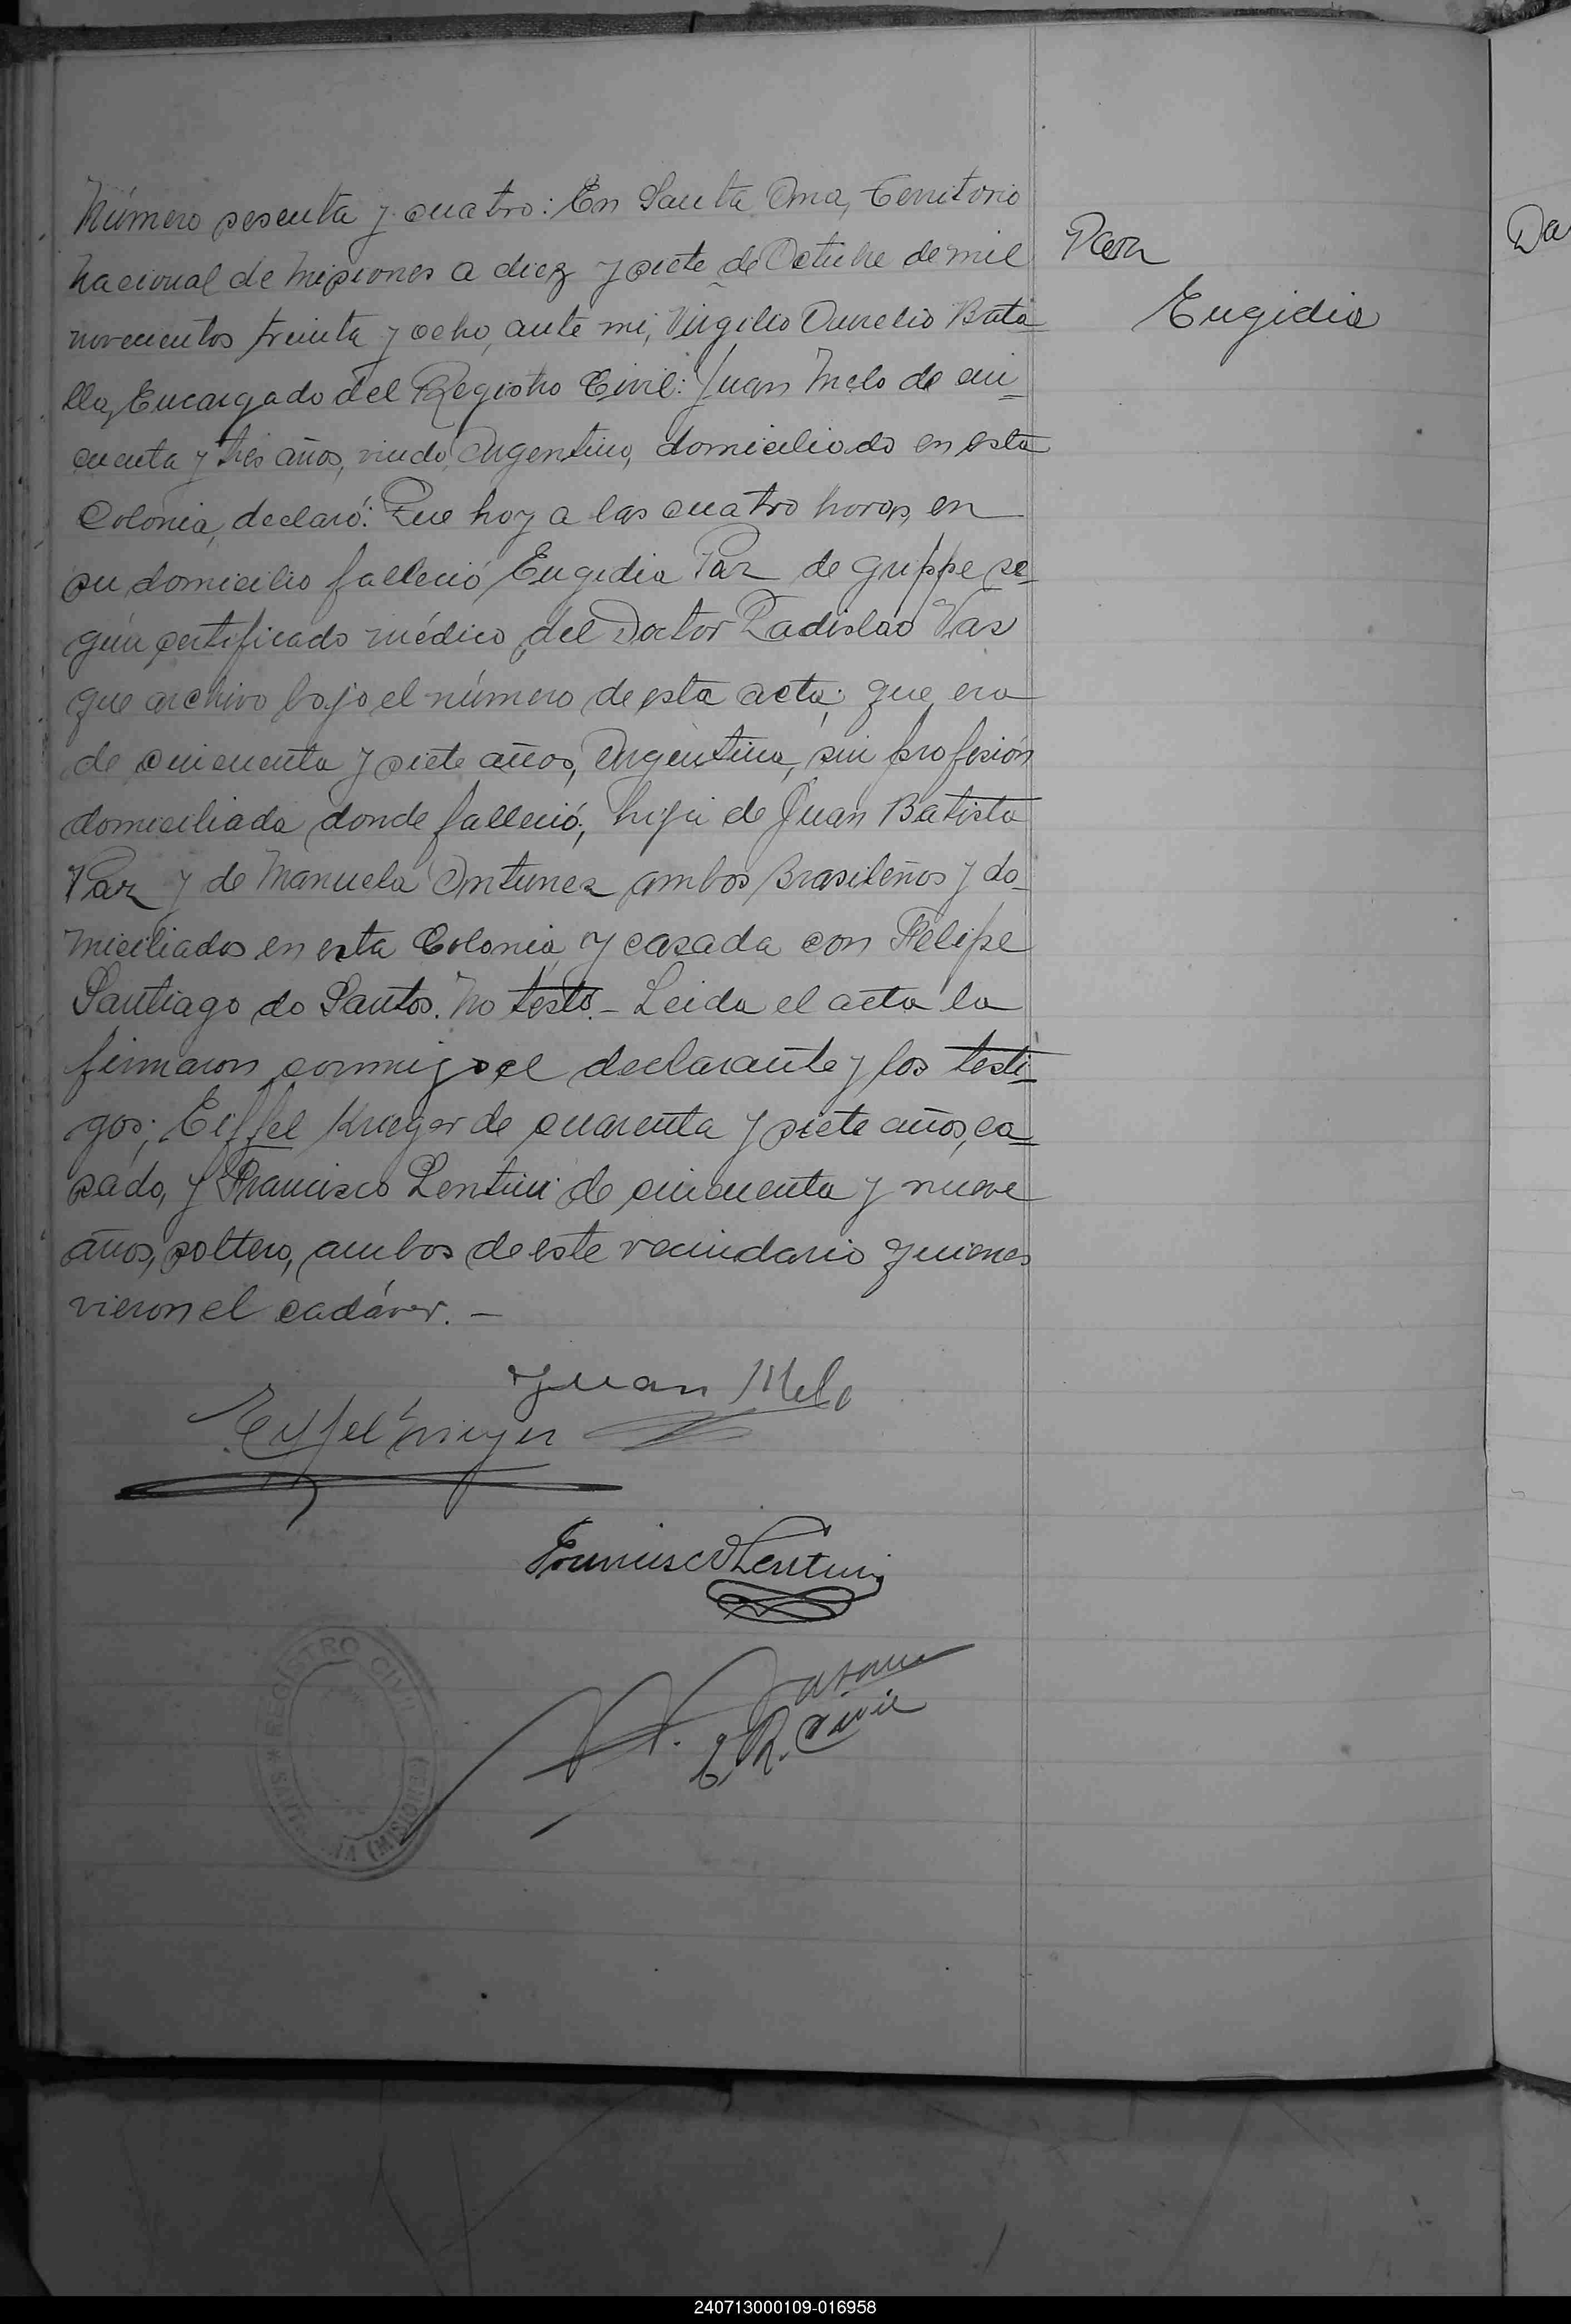 Número sesenta y cuatro: En Santa Ana, Territorio
Nacional de Misiones a diez y siete de Octubre de mil
novecientos treinta y ocho, ante mi, Virgilio Aurelio Bata
lla, Encargado del Registro Civil: Juan Melo de cin-
cuenta y tres años, viudo, Argentino, domiciliado en esta
Colonia, declaró: Que hoy a las cuatro horas, en
su domicilio falleció Eugidia Paz de grippe se-
gún certificado médico del Doctor Ladislao Vas
que archivo bajo el número de esta acta; que era
de cincuenta y siete años, Argentina, sin profesión
domiciliada donde falleció; hija de Juan Batista
Paz y de Manuela Antunez ambos Brasileños y do-
miciliados en esta Colonia y casada con Felipe
Santiago do Santos. No testó.- Leida el acta la
firmaron conmigo el declarante y los testi-
gos; Eiffel Kruger de cuarenta y siete años, ca-
sado, y Francisco Lentini de cincuenta y nueve
años, soltero, ambos de este vecindario quienes
vieron el cadáver. -
Paz
Eugidia
Da
Juan Melo
Eiffel Kruger
Francisco Lentini
E. R. Civil
REGISTRO CIVIL
(MISIONES)
240713000109-016958